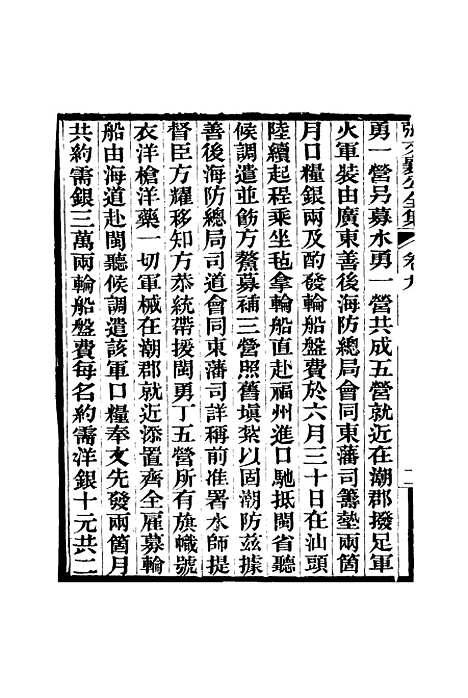 勇一營另募水勇一營共成五營就近在潮郡撥足軍
火軍裝由廣東善後海防總局會同東藩司籌墊兩箇
月口糧銀兩及酌發輪船盤費於六月三十日在汕頭
陸續起程乘坐毡拿輪船直赴福州進口馳抵閩省聽
候調遣並飭方鰲募補三營照舊塡紮以固潮防茲據
善後海防總局司道會同東藩司詳稱前准署水師提
督臣方耀移知方恭統帶援閩勇丁五營所有旗幟號
衣洋槍洋藥一切軍械在潮郡就近添置齊全雇募輪
船由海道赴閩聽候調遣該軍口糧奉文先發兩箇月
共約需銀三萬兩輪船盤費每名約需洋銀十元共二
卷九